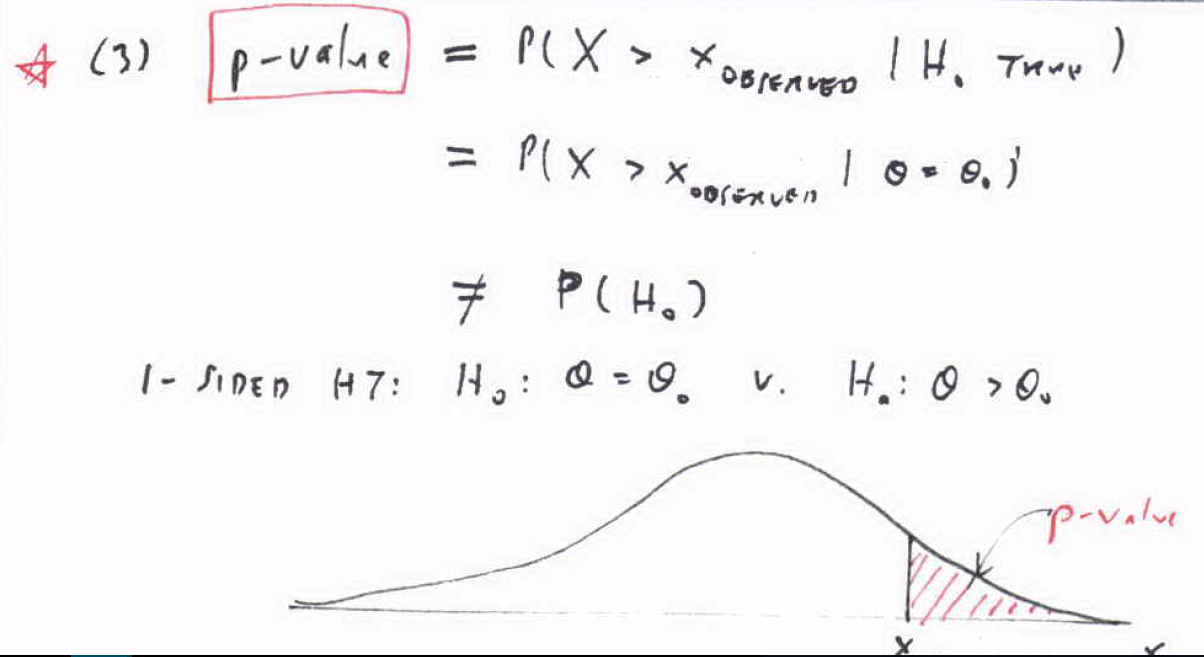 ☆ (3) p-value = P(X > x OBSERVED | H₀ TRUE)
= P(X > x OBSERVED | θ = θ₀)
≠ P(H₀)
1-SIDED HT: H₀: θ = θ₀ v. Hₐ: θ > θ₀
p-value
x x